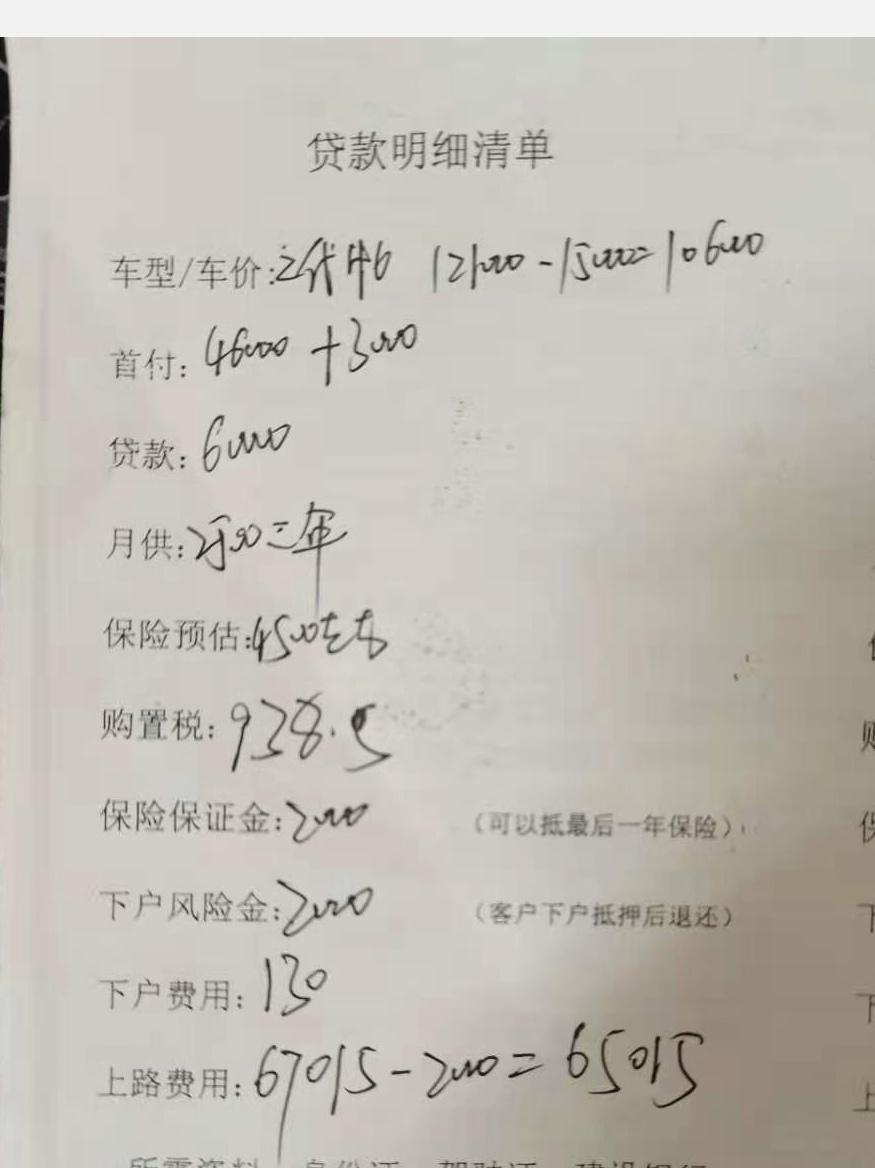 贷款明细清单
车型/车价: 121000-15000=106000
首付:46000+3000
贷款:60000
月供: 三年
保险预估:4500左右
购置税:938.5
保险保证金:2000 (可以抵最后一年保险)
下户风险金:2000 (客户下户抵押后退还)
下户费用:130
上路费用:67015-2000=65015